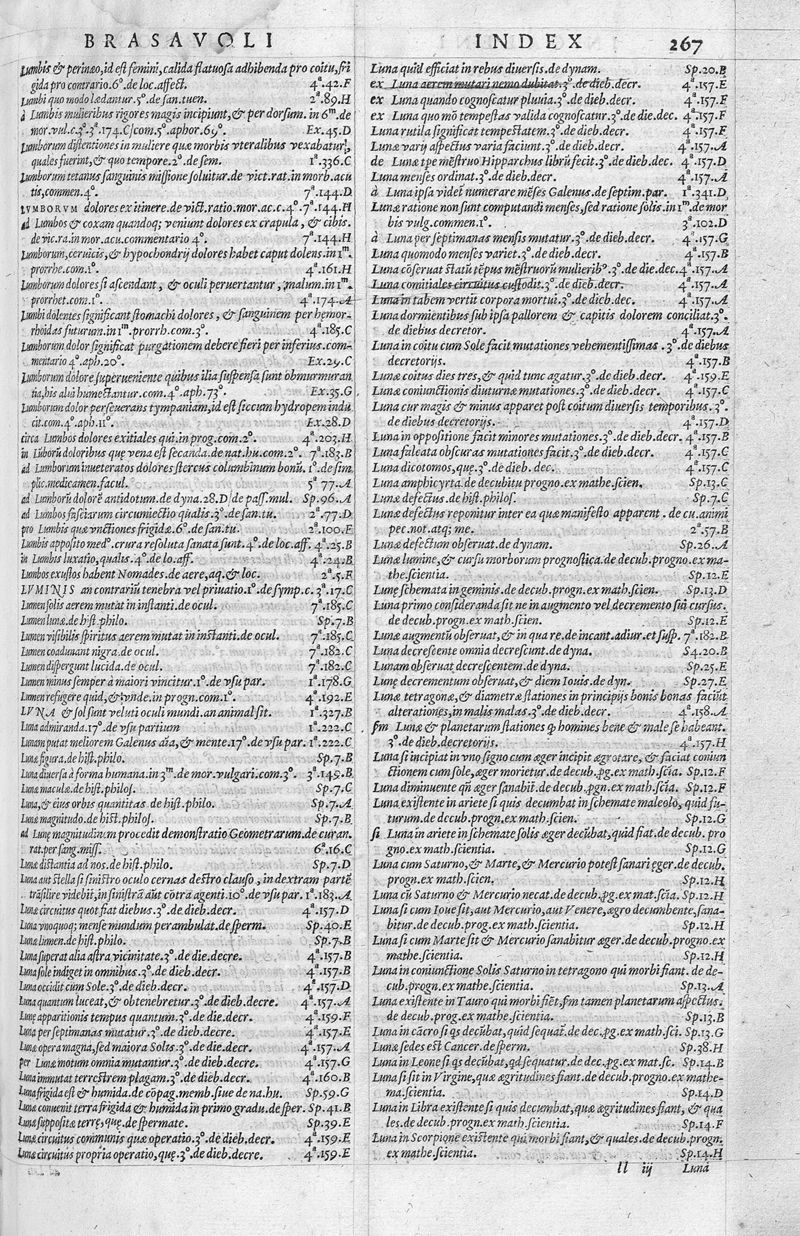 BRASAVOLI INDEX 267
Lumbis & perinæo, id est femini, calida flatuosa adhibenda pro coitu, fri
gida pro contrario. 6°. de loc. affect. 4ª.42.F
Lumbi quo modo lædantur. 5°. de san. tuen. 2ª.89.H
à Lumbis mulieribus rigores magis incipiunt, & per dorsum. in 6ᵐ. de
mor. vul. c. 3. 3ª.174.C / com. 5°. aphor. 69°. Ex.45.D
Lumborum distentiones in muliere quæ morbis vteralibus vexabatur,
quales fuerint, & quo tempore. 2°. de sem. 1ª.336.C
Lumborum tetanus sanguinis missione soluitur. de vict. rat. in morb. acu
tis, commen. 4°. 7ª.144.D
LVMBORVM dolores ex itinere. de vict. ratio. mor. ac. c. 4°. 7ª.144.H
ad Lumbos & coxam quandoq; veniunt dolores ex crapula, & cibis.
de vic. ra. in mor. acu. commentario 4°. 7ª.144.H
Lumborum, ceruicis, & hypochondrij dolores habet caput dolens. in 1ᵐ.
prorrhe. com. 1°. 4ª.161.H
Lumborum dolores si ascendant, & oculi peruertantur, malum. in 1ᵐ.
prorrhet. com. 1°. 4ª.174.A
Lumbi dolentes significant stomachi dolores, & sanguinem per hemor-
rhoidas futurum. in 1ᵐ. prorrh. com. 3°. 4ª.185.C
Lumborum dolor significat purgationem debere fieri per inferius. com-
mentario 4°. aph. 20°. Ex.29.C
Lumborum dolore superueniente quibus ilia suspensa sunt obmurmuran
tia, his alui humectantur. com. 4°. aph. 73°. Ex.35.G
Lumborum dolor perseuerans tympaniam, id est siccum hydropem indu
cit. com. 4°. aph. 11°. Ex.28.D
circa Lumbos dolores exitiales qui. in prog. com. 2°. 4ª.203.H
in Lũborũ doloribus quę vena est secanda. de nat. hu. com. 2°. 7ª.183.B
ad Lumborum inueteratos dolores stercus columbinum bonũ. 1°. de sim
plic. medicamen. facul. 5ª 77.A
ad Lumborũ dolorẽ antidotum. de dyna. 28.D de pass. mul. Sp.96.A
ad Lumbos fasciarum circumiectio qualis. 3°. de san. tu. 2ª.77.D
pro Lumbis quæ vnctiones frigidæ. 6°. de san. tu. 2ª.100.F
Lumbis apposito med°. crura resoluta sanata sunt. 4°. de loc. aff. 4ª.25.B
in Lumbis luxatio, qualis. 4°. de lo. aff. 4ª.24.B
Lumbos exustos habent Nomades. de aere, aq. & loc. 2ª.5.F
LVMINIS an contrariũ tenebra vel priuatio. 1°. de symp. c. 3ª.17.C
Lumen solis aerem mutat in instanti. de ocul. 7ª.185.C
Lumen lunæ. de hist. philo. Sp.7.B
Lumen visibilis spiritus aerem mutat in instanti. de ocul. 7ª.185.C
Lumen coadunant nigra. de ocul. 7ª.182.C
Lumen dispergunt lucida. de ocul. 7ª.182.C
Lumen minus semper à maiori vincitur. 1°. de vsu par. 1ª.178.G
Lumen refugere quid, & vnde. in progn. com. 1°. 4ª.192.E
LVNA & sol sunt veluti oculi mundi. an animal sit. 1ª.327.B
Luna admiranda. 17°. de vsu partium 1ª.222.C
Lunam putat meliorem Galenus aĩa, & mente. 17°. de vsu par. 1ª.222.C
Lunæ figura. de hist. philo. Sp.7.B
Luna diuersa à forma humana. in 3ᵐ. de mor. vulgari. com. 3°. 3ª.149.B
Lunæ maculæ. de hist. philos. Sp.7.C
Luna, & eius orbis quantitas. de hist. philo. Sp.7.A
Lunæ magnitudo. de hist. philos. Sp.7.B
ad Lunę magnitudinem procedit demonstratio Geometrarum. de curan.
rat. per sang. miss. 6ª.16.C
Lunæ distantia ad nos. de hist. philo. Sp.7.D
Luna aut stella si sinistro oculo cernas dextro clauso, in dextram partẽ
trãsilire videbit, in sinistrã aũt cõtra agenti. 10°. de vsu par. 1ª.183.A
Lunæ circuitus quot fiat diebus. 3°. de dieb. decr. 4ª.157.D
Luna vnoquoq; mense mundum perambulat. de sperm. Sp.40.E
Lunæ lumen. de hist. philo. Sp.7.B
Luna superat alia astra vicinitate. 3°. de die. decre. 4ª.157.B
Luna sole indiget in omnibus. 3°. de dieb. decr. 4ª.157.B
Luna occidit cum Sole. 3°. de dieb. decr. 4ª.157.D
Luna quantum luceat, & obtenebretur. 3°. de dieb. decre. 4ª.157.A
Lunę apparitionis tempus quantum. 3°. de die. decr. 4ª.159.F
Luna per septimanas mutatur. 3°. de dieb. decre. 4ª.157.E
Lunæ opera magna, sed maiora Solis. 3°. de die. decr. 4ª.157.A
per Lunæ motum omnia mutantur. 3°. de dieb. decre. 4ª.157.G
Luna immutat terrestrem plagam. 3°. de dieb. decr. 4ª.160.B
Luna frigida est & humida. de cõpag. memb. siue de na. hu. Sp.59.G
Lunæ conuenit terra frigida & humida in primo gradu. de sper. Sp.41.B
Lunæ suppositæ terrę, quę. de spermate. Sp.39.E
Lunæ circuitus communis quæ operatio. 3°. de dieb. decr. 4ª.159.E
Lunæ circuitus propria operatio, quę. 3°. de dieb. decre. 4ª.159.E
Luna quid efficiat in rebus diuersis. de dynam. Sp.20.B
ex Luna aerem mutari nemo dubitat. 3°. de dieb. decr. 4ª.157.E
ex Luna quando cognoscatur pluuia. 3°. de dieb. decr. 4ª.157.F
ex Luna quo mõ tempestas valida cognoscatur. 3°. de die. dec. 4ª.157.F
Luna rutila significat tempestatem. 3°. de dieb. decr. 4ª.157.F
Lunæ varij aspectus varia faciunt. 3°. de dieb. decr. 4ª.157.A
de Lunæ tpe mẽstruo Hipparchus librũ fecit. 3°. de dieb. dec. 4ª.157.D
Luna menses ordinat. 3°. de dieb. decr. 4ª.157.A
à Luna ipsa videt numerare mẽses Galenus. de septim. par. 1ª.341.D
Lunæ ratione non sunt computandi menses, sed ratione solis. in 1ᵐ. de mor
bis vulg. commen. 1°. 3ª.102.D
à Luna per septimanas mensis mutatur. 3°. de dieb. decr. 4ª.157.G
Luna quomodo menses variet. 3°. de dieb. decr. 4ª.157.B
Luna cõseruat statũ tẽpus mẽstruorũ mulierib°. 3°. de die. dec. 4ª.157.A
Luna comitiales circuitus custodit. 3°. de dieb. decr. 4ª.157.A
Luna in tabem vertit corpora mortui. 3°. de dieb. dec. 4ª.157.A
Luna dormientibus sub ipsa pallorem & capitis dolorem conciliat. 3°.
de diebus decretor. 4ª.157.A
Luna in coitu cum Sole facit mutationes vehementissimas. 3°. de diebus
decretorijs. 4ª.157.B
Lunæ coitus dies tres, & quid tunc agatur. 3°. de dieb. decr. 4ª.159.E
Lunæ coniunctionis diuturnæ mutationes. 3°. de dieb. decr. 4ª.157.C
Luna cur magis & minus apparet post coitum diuersis temporibus. 3°.
de diebus decretorijs. 4ª.157.D
Luna in oppositione facit minores mutationes. 3°. de dieb. decr. 4ª.157.B
Luna falcata obscuras mutationes facit. 3°. de dieb. decr. 4ª.157.C
Luna dicotomos, quę. 3°. de dieb. dec. 4ª.157.C
Luna amphicyrta. de decubitu progno. ex mathe. scien. Sp.13.C
Lunæ defectus. de hist. philos. Sp.7.C
Lunæ defectus reponitur inter ea quæ manifesto apparent. de cu. animi
pec. not. atq; me. 2ª.57.B
Lunæ defectum obseruat. de dynam. Sp.26.A
Lunæ lumine, & cursu morborum prognostica. de decub. progno. ex ma-
the. scientia. Sp.12.E
Lunę schemata in geminis. de decub. progn. ex math. scien. Sp.13.D
Luna primo consideranda sit ne in augmento vel decremento sui cursus.
de decub. progn. ex mathe. scien. Sp.12.E
Lunæ augmentũ obseruat, & in qua re. de incant. adiur. et susp. 7ª.182.B
Luna decrescente omnia decrescunt. de dyna. S4.20.B
Lunam obseruat decrescentem. de dyna. Sp.25.E
Lunę decrementum obseruat, & diem Iouis. de dyn. Sp.27.E
Lunæ tetragonæ, & diametræ stationes in principijs bonis bonas faciũt
alterationes, in malis malas. 3°. de dieb. decr. 4ª.158.A
sm Lunæ & planetarum stationes q̃ homines bene & male se habeant.
3°. de dieb. decretorijs. 4ª.157.H
Luna si incipiat in vno signo cum æger incipit ægrotare, & faciat coniun
ctionem cum sole, æger morietur. de decub. pg. ex math. scia. Sp.12.F
Luna diminuente qñ æger sanabit. de decub. pgn. ex math. scia. Sp.12.F
Luna existente in ariete si quis decumbat in schemate maleolo, quid fu-
turum. de decub. progn. ex math. scien. Sp.12.G
si Luna in ariete in schemate solis æger decũbat, quid fiat. de decub. pro
gno. ex math. scientia. Sp.12.G
Luna cum Saturno, & Marte, & Mercurio potest sanari eger. de decub.
progn. ex math. scien. Sp.12.H
Luna cũ Saturno & Mercurio necat. de decub. pg. ex mat. scia. Sp.12.H
Luna si cum Ioue sit, aut Mercurio, aut Venere, ægro decumbente, sana-
bitur. de decub. prog. ex math. scientia. Sp.12.H
Luna si cum Marte sit & Mercurio sanabitur æger. de decub. progno. ex
mathe. scientia. Sp.12.H
Luna in coniunctione Solis Saturno in tetragono qui morbi fiant. de de-
cub. progn. ex mathe. scientia. Sp.13.A
Luna existente in Tauro qui morbi fiẽt, sm tamen planetarum aspectus.
de decub. prog. ex mathe. scientia. Sp.13.B
Luna in cãcro si qs decũbat, quid sequaĩ. de dec. pg. ex math. sci. Sp.13.G
Lunæ sedes est Cancer. de sperm. Sp.38.H
Luna in Leone si qs decũbat, qd sequatur. de dec. pg. ex mat. sc. Sp.14.B
Luna si sit in Virgine, quæ ægritudines fiant. de decub. progno. ex mathe-
ma. scientia. Sp.14.D
Luna in Libra existente si quis decumbat, quæ ægritudines fiant, & qua
les. de decub. progn. ex math. scientia. Sp.14.F
Luna in Scorpione existente qui morbi fiant, & quales. de decub. progn.
ex mathe. scientia. Sp.14.H
ll iij Luna